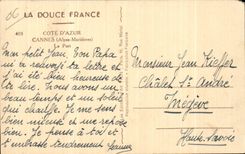 LA DOUCE FRANCE
CÔTE D'AZUR
CANNES (Alpes-Maritimes)
Le Port
Mon petit Jean, Ton Papa
m'a renvoyé ta lettre et
j'ai été bien heureuse de
te lire. Nous avons un
beau temps et un soleil
chaud. Je me sens
bien mieux et me repose
bien. Je pense à toi et
t'embrasse tendrement
Monsieur Jean Kieffer
Châlet St André
Megève
Haute-Savoie